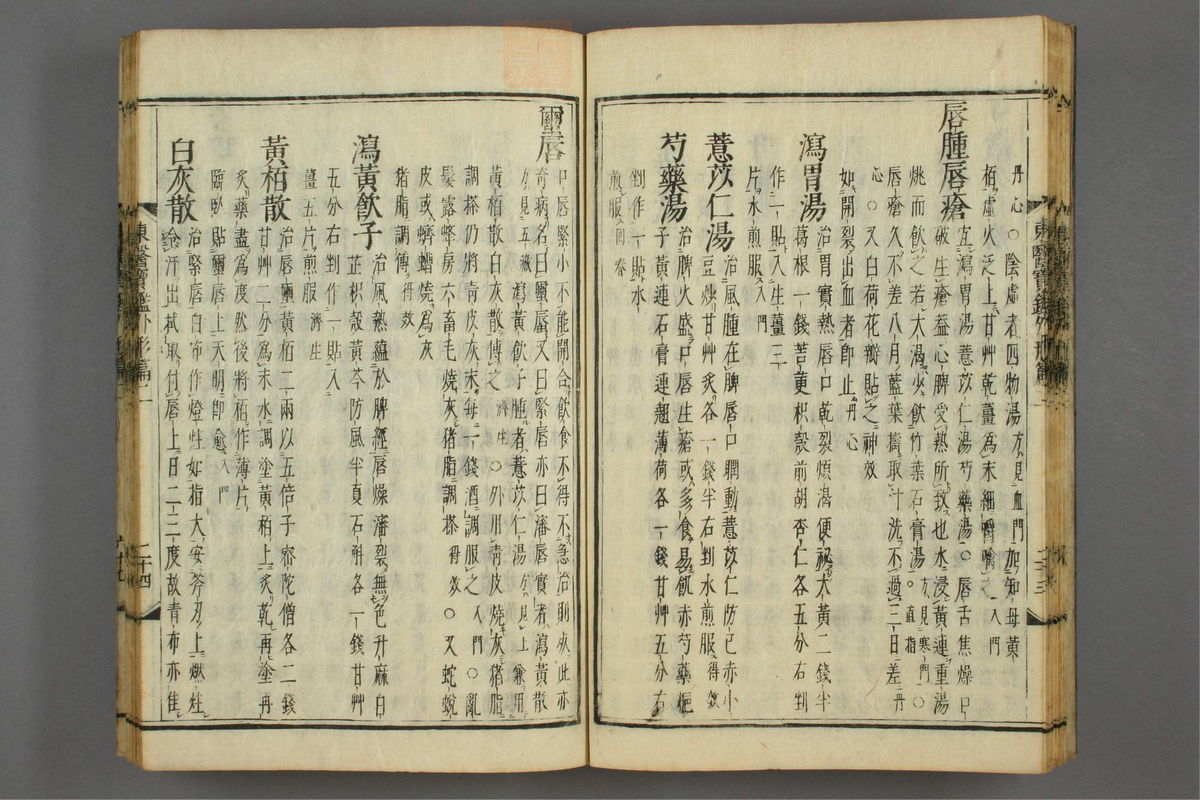 丹心○陰虛者四物湯方見血門加知母黃
栢虛火泛上甘艸乾薑為末細嚼嚥之入門
唇腫唇瘡宜瀉胃湯薏苡仁湯芍藥湯○唇舌焦燥口
破生瘡盖心脾受熱所致也水浸黃連重湯
烑而飲之若大渴少飲竹葉石膏湯方見寒門○直指
唇瘡久不差八月藍葉搗取汁洗不過三日差丹
心○又白荷花瓣貼之神效
如開裂出血者即止丹心
瀉胃湯治胃實熱唇口乾裂煩渴便祕大黃二錢半
葛根一錢苦莄枳殼前胡杏仁各五分右剉
作一貼入生薑三
片水煎服入門
薏苡仁湯治風腫在脾唇口瞤動薏苡仁防已赤小
豆炒甘艸炙各一錢半右剉水煎服得效
芍藥湯治脾火盛口唇生瘡或多食易飢赤芍藥梔
子黃連石膏連翹薄荷各一錢甘艸五分右
剉作一貼水
煎服回春
璽唇口唇緊小不能開合飲食不得不急治則灰此亦
奇病名曰璽唇又曰緊唇亦曰瀋唇實者瀉黃散
方見五藏瀉黃飲子腫者薏苡仁湯方見上兼用
黃栢散白灰散傅之濟生○外用青皮燒灰猪脂
調搽仍將青皮灰末每一錢酒調服之入門○亂
髮露蜂房六畜毛燒灰猪脂調搽得效○又蛇蛻
皮或蠐螬燒為灰
猪脂調傅得效
瀉黃飲子治風熱蘊於脾經唇燥瀋裂無色升麻白
芷枳殼黃芩防風半夏石斛各一錢甘艸
五分右剉作一貼入
薑五片煎服濟生
黃栢散治唇璽黃栢二兩以五倍子密陀僧各二錢
甘艸二分為末水調塗黃栢上炙乾再塗再
炙藥盡為度然後將栢作薄片
臨臥貼璽唇上天明即愈入門
白灰散治緊唇白布作燈炷如指大安斧刃上燃炷
令汗出拭取付唇上日二三度故青布亦佳
東醫寶鑑外形篇二
二十三
東醫寶鑑外形篇二
二十四